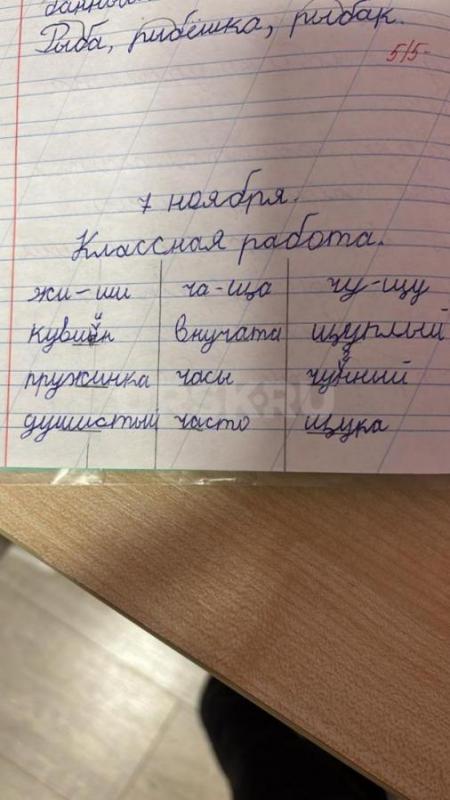 Рыба, рыбёшка, рыбак.
5/5-
7 ноября.
Классная работа.
жи-ши ча-ща чу-щу
внучата щуплый
пружинка часы
душистый часто щука